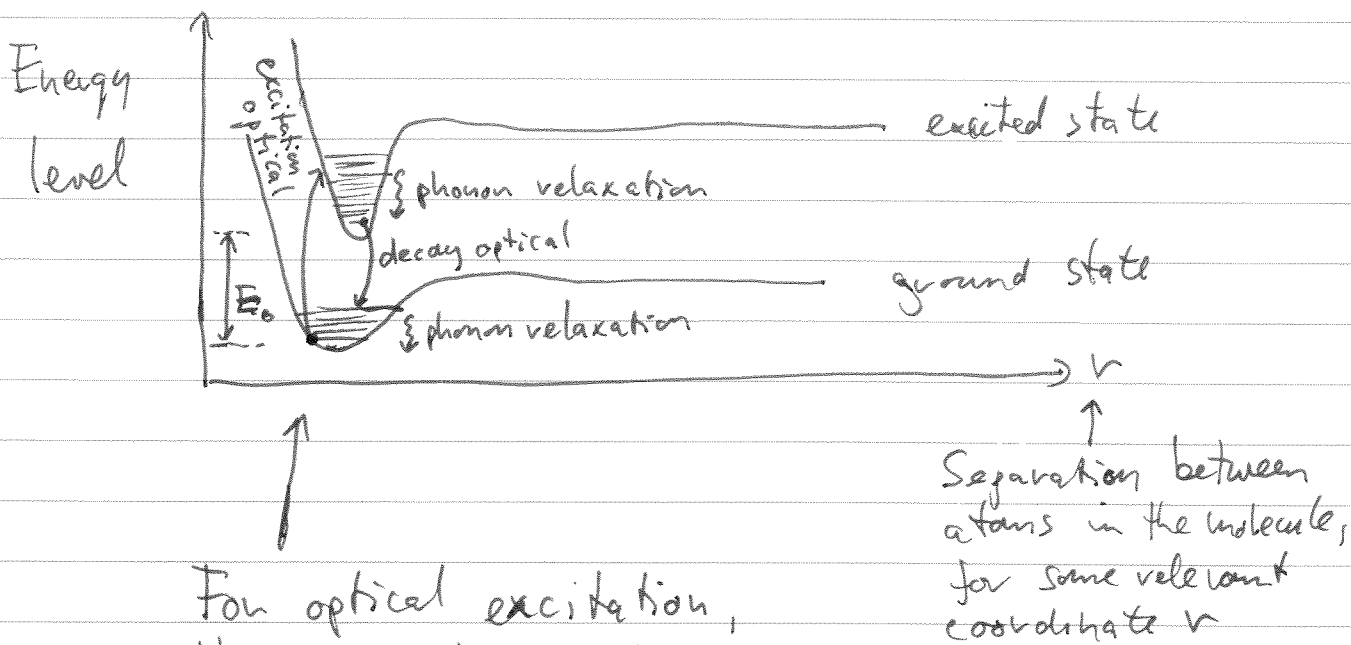 Energy
level
excitation
optical
excited state
phonon relaxation
decay optical
E₀
ground state
phonon relaxation
r
Separation between
atoms in the molecule,
for some relevant
coordinate r
For optical excitation,